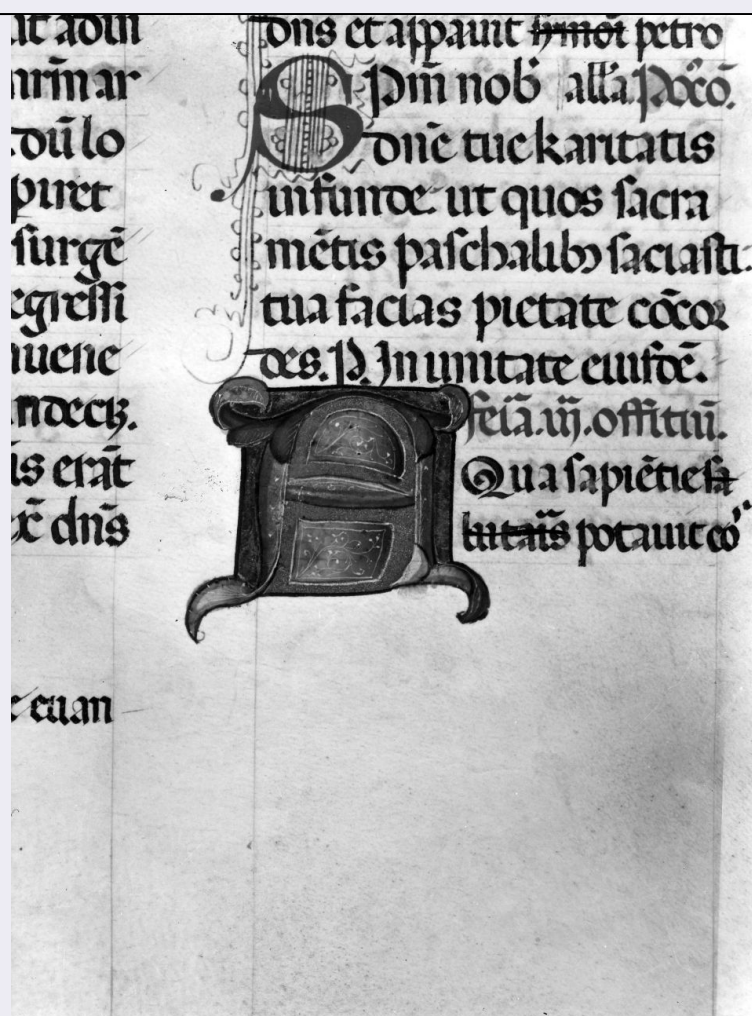 ut adim
.dū lo
piret
surgē
egressi
uene
is erāt
dn̄s
euan
dn̄s et apparuit petro
Sp̄m nob̄ all̄a. P̄ō cō.
dn̄e tue karitatis
infunde. ut quos sacra
mētis paschalibȝ saciasti.
tua facias pietate cōcor
des. P. In unitate eiusdē.
feīa. iij. offitiū.
Aqua sapiētie
potauit eō